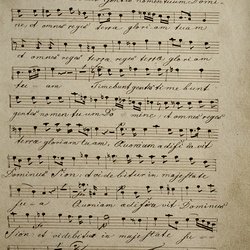 Gentes nomen tuum Domi-
ne, et omnes reges terra gloriam tuam
et omnes reges terra reges terra gloriam
tu-am Timebunt gentes time bunt
gentes nomen tuum Do mine, et omnes reges
terra gloriam tuam. Quoniam adifi ca vit
Dominus Sion, et videbitur in majestate
su-a Quoniam adifica vit Dominus
Sion et videbitur in majestate su